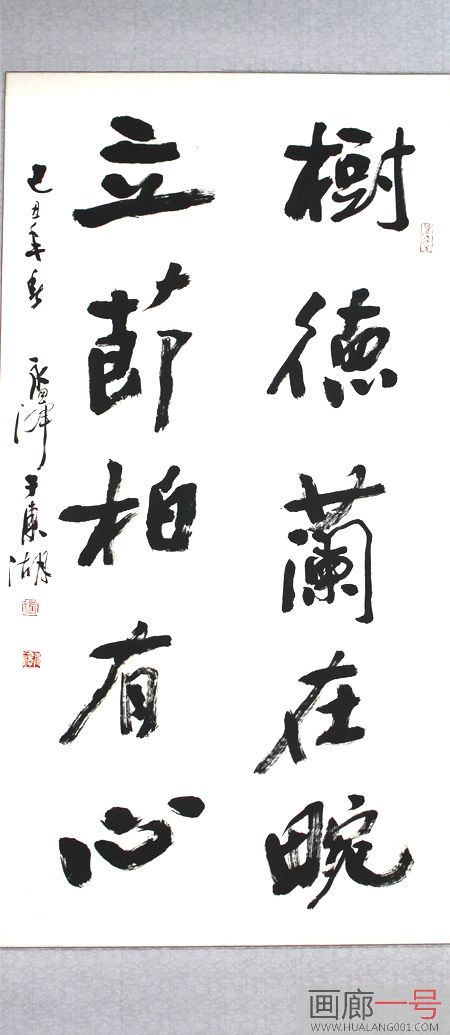 樹德蘭在畹
立節柏有心
己丑年春
于東湖
画廊一号
WWW.HUALANG001.COM